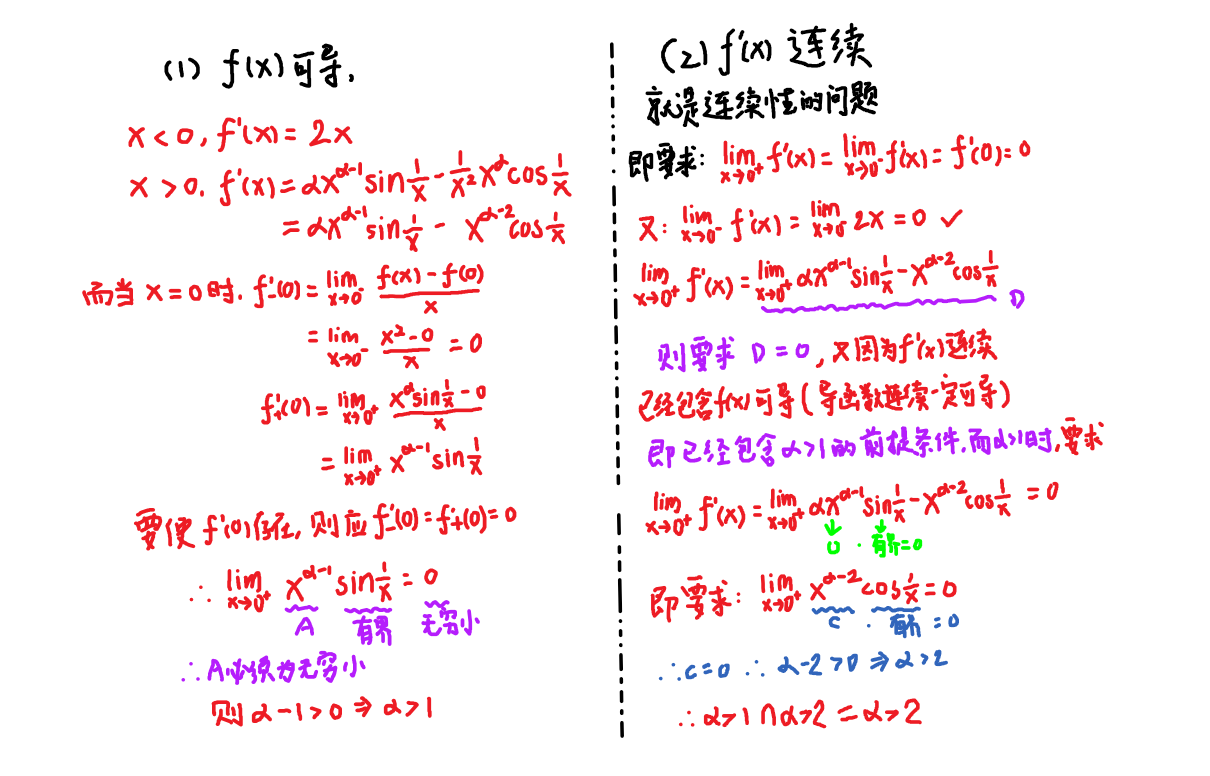 (1) f(x)可导,
x<0, f'(x)=2x
x>0, f'(x)=αx^{α-1}sin 1/x - 1/x² x^α cos 1/x
=αx^{α-1}sin 1/x - x^{α-2}cos 1/x
而当x=0时, f'₋(0)=lim_{x→0⁻} (f(x)-f(0))/x
=lim_{x→0⁻} (x²-0)/x =0
f'₊(0)=lim_{x→0⁺} (x^α sin 1/x -0)/x
=lim_{x→0⁺} x^{α-1}sin 1/x
要使f'(0)存在, 则应f'₋(0)=f'₊(0)=0
∴ lim_{x→0⁺} x^{α-1}sin 1/x =0
A 有界 无穷小
∴A必须为无穷小
则α-1>0⇒α>1
(2) f'(x) 连续
就是连续性的问题
即要求: lim_{x→0⁺} f'(x)=lim_{x→0⁻} f'(x)=f'(0)=0
又: lim_{x→0⁻} f'(x)=lim_{x→0⁻} 2x=0 ✓
lim_{x→0⁺} f'(x)=lim_{x→0⁺} αx^{α-1}sin 1/x - x^{α-2}cos 1/x
D
则要求 D=0, 又因为f'(x)连续
已经包含f(x)可导(导函数连续一定可导)
即已经包含α>1的前提条件,而α>1时,要求
lim_{x→0⁺} f'(x)=lim_{x→0⁺} αx^{α-1}sin 1/x - x^{α-2}cos 1/x =0
↓ ↓
0 · 有界=0
即要求: lim_{x→0⁺} x^{α-2}cos 1/x =0
C · 有界 =0
∴C=0 ∴ α-2>0⇒α>2
∴α>1∩α>2=α>2